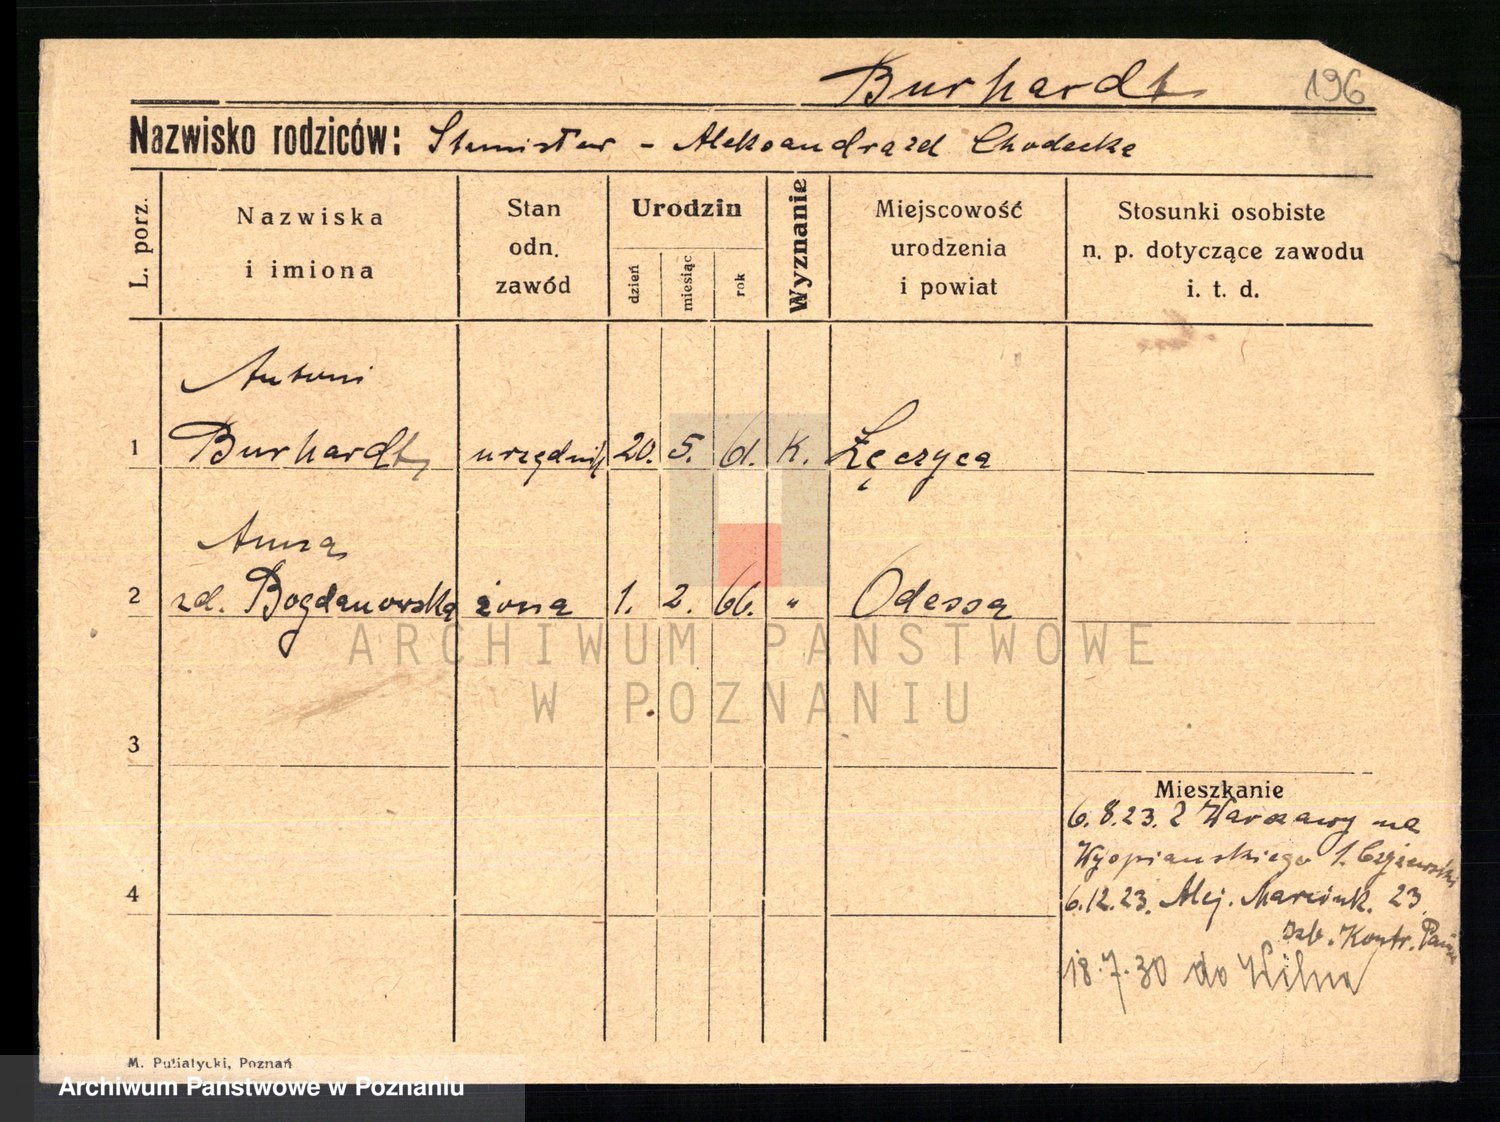 Burhardt 196
Nazwisko rodziców: Stanisław - Aleksandra zd Chodecka
L. porz.
Nazwiska
i imiona
Stan
odn.
zawód
Urodzin
dzień
miesiąc
rok
Wyznanie
Miejscowość
urodzenia
i powiat
Stosunki osobiste
n. p. dotyczące zawodu
i. t. d.
Antoni
1 Burhardt urzędnik 20. 5. 61. K. Łęczyca
Anna
2 zd. Bogdanowska żona 1. 2. 66. " Odessa
ARCHIWUM PAŃSTWOWE
W POZNANIU
3
Mieszkanie
6.8.23. z Warszawy na
Wyspiańskiego 1. Czyżewski
4
6.12.23. Alej. Marcink. 23.
Izb. Kontr. Pań
18.7.30 do Wilna
M. Putiatycki, Poznań
Archiwum Państwowe w Poznaniu